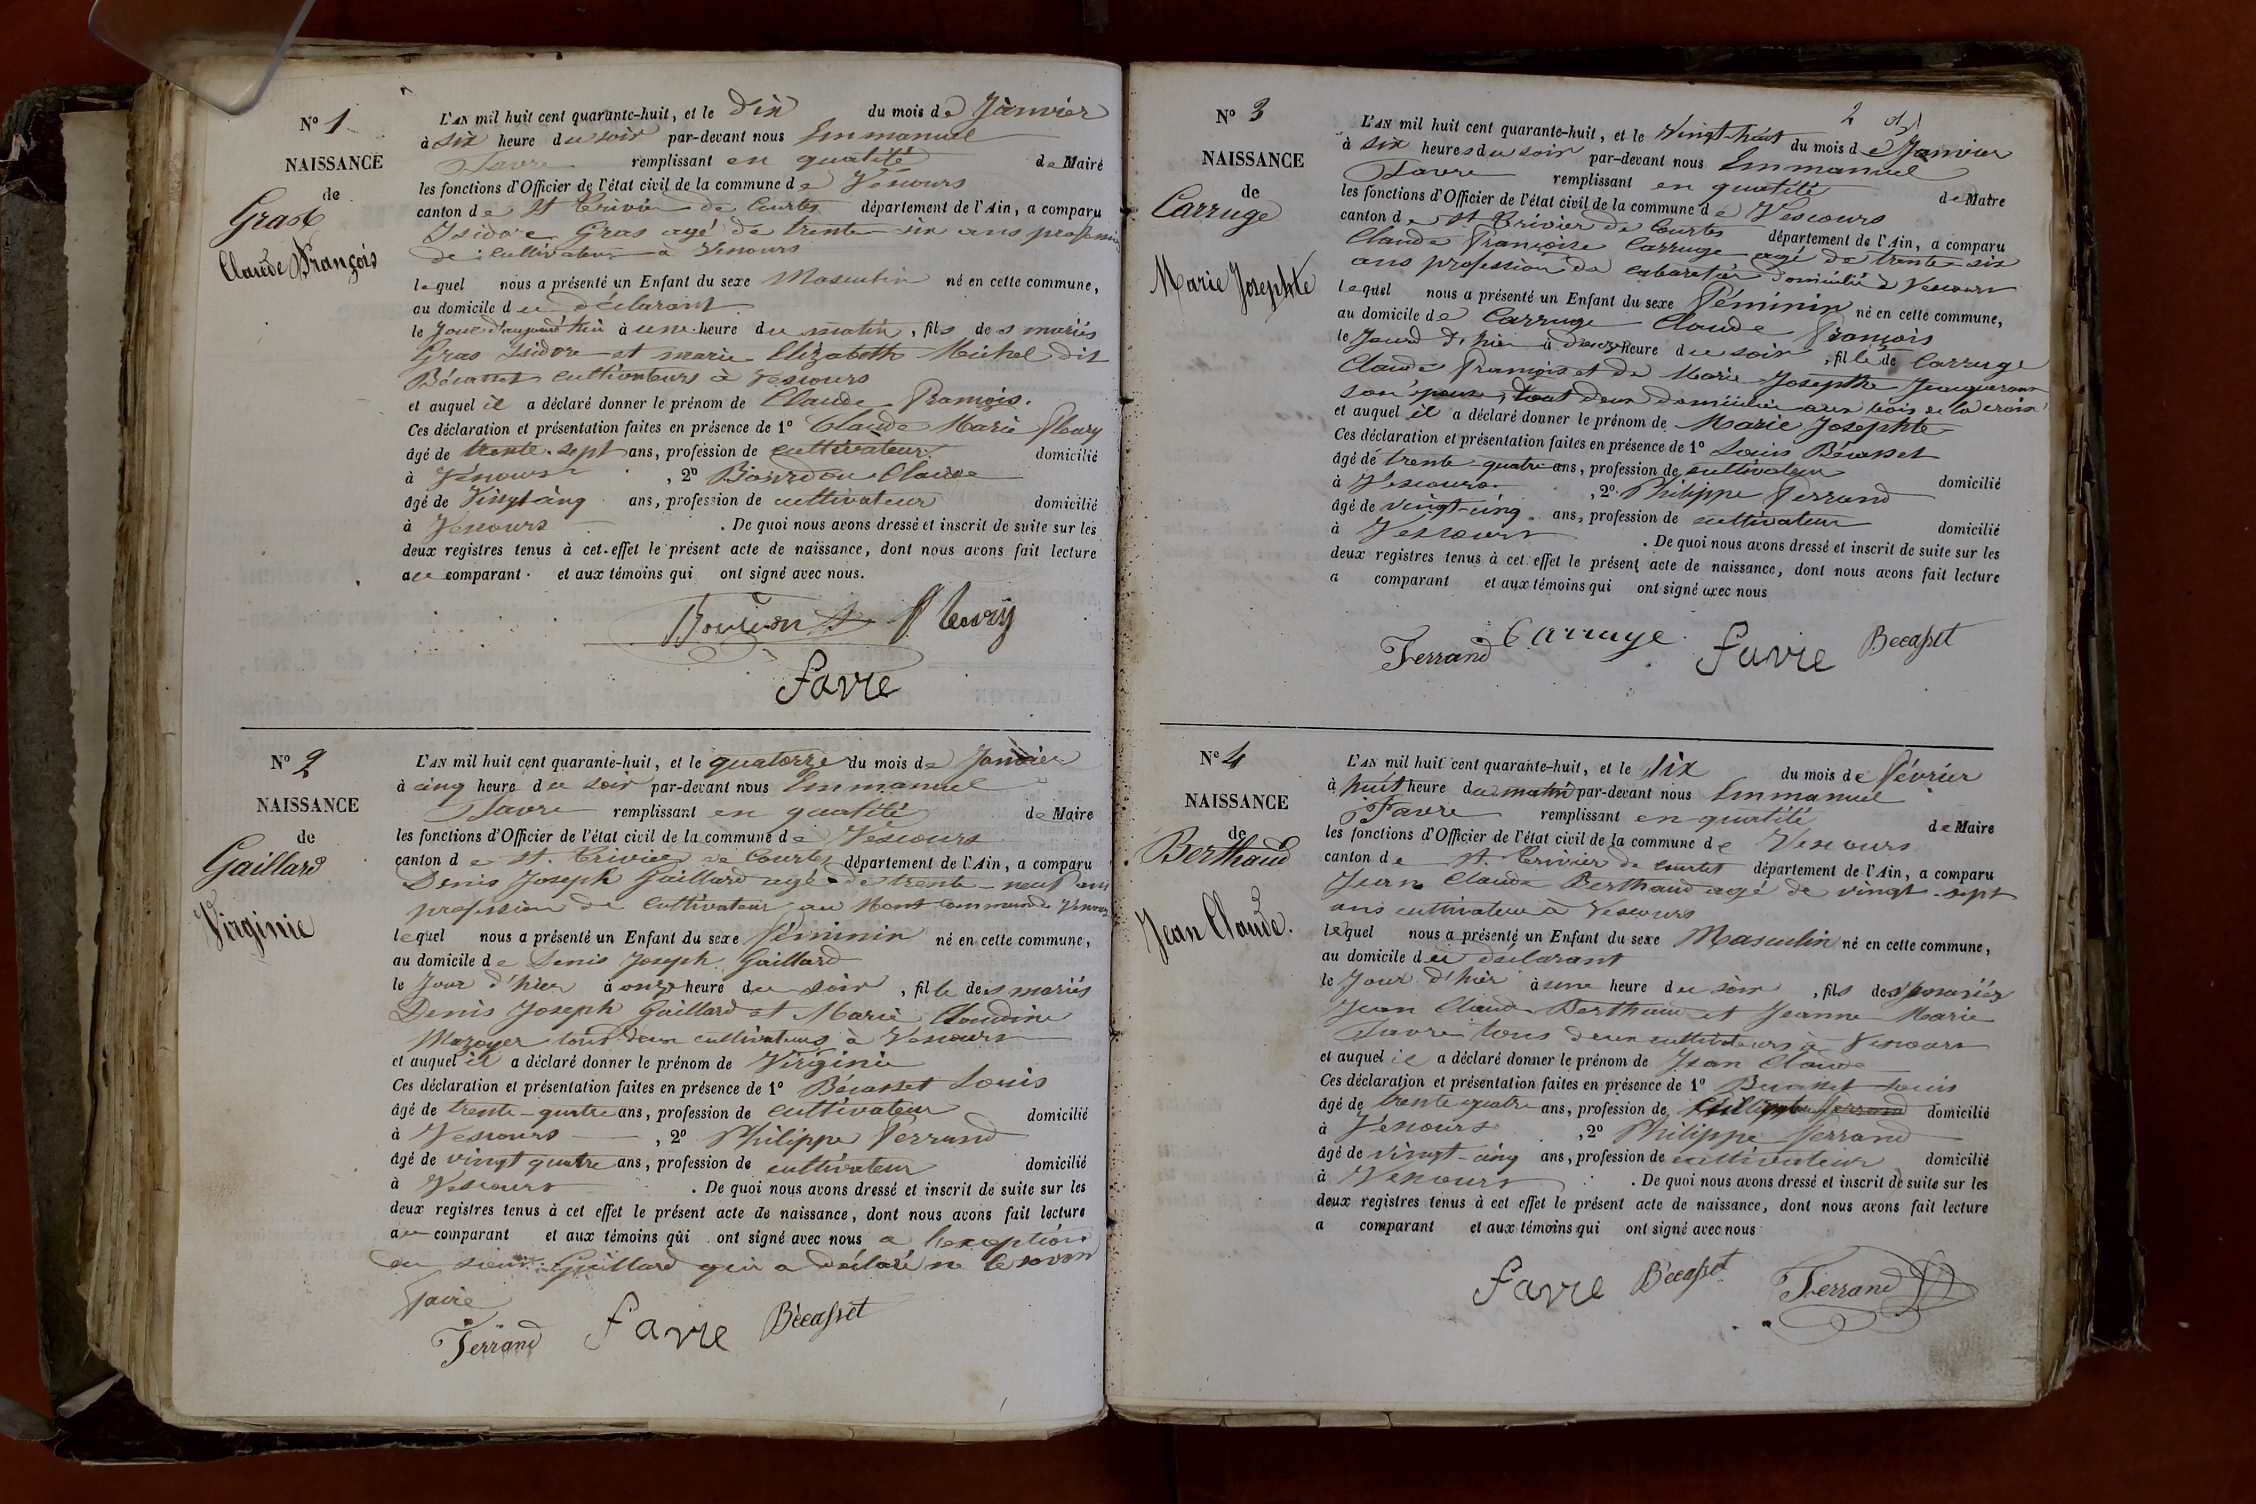 Nº 1
NAISSANCE
de
Gras
Claude François
L'AN mil huit cent quarante-huit, et le Dix du mois de Janvier
à six heure du soir par-devant nous Emmanuel
Favre remplissant en qualité de Maire
les fonctions d'Officier de l'état civil de la commune de Vescours
canton de St Trivier de Courtes département de l'Ain, a comparu
Isidore Gras agé de trente six ans profession
de cultivateur à Vescours
lequel nous a présenté un Enfant du sexe Masculin né en cette commune,
au domicile du déclarant
le Jour d'aujourd'hui à une heure du matin, fils des mariés
Gras Isidore et marie Elizabeth Michel dit
Bécasset cultivateurs à Vescours
et auquel il a déclaré donner le prénom de Claude François.
Ces déclaration et présentation faites en présence de 1º Claude Marie Fleury
âgé de trente-sept ans, profession de cultivateur domicilié
à Vescours, 2º Bourdon Claude
âgé de Vingt cinq ans, profession de cultivateur domicilié
à Vescours. De quoi nous avons dressé et inscrit de suite sur les
deux registres tenus à cet effet le présent acte de naissance, dont nous avons fait lecture
au comparant et aux témoins qui ont signé avec nous.
Bourdon Fleury
Favre
Nº 2
NAISSANCE
de
Gaillard
Virginie
L'AN mil huit cent quarante-huit, et le quatorze du mois de Janvier
à cinq heure du soir par-devant nous Emmanuel
Favre remplissant en qualité de Maire
les fonctions d'Officier de l'état civil de la commune de Vescours
canton de St. Trivier de Courtes département de l'Ain, a comparu
Denis Joseph Gaillard agé de trente-neuf ans
profession de Cultivateur au Mont commune de Vescours
lequel nous a présenté un Enfant du sexe Féminin né en cette commune,
au domicile de Denis Joseph Gaillard
le Jour d'hier à onze heure du soir, fille des mariés
Denis Joseph Gaillard et Marie Claudine
Mazoyer tous deux cultivateurs à Vescours
et auquel il a déclaré donner le prénom de Virginie
Ces déclaration et présentation faites en présence de 1º Bécasset Louis
âgé de trente-quatre ans, profession de cultivateur domicilié
à Vescours, 2º Philippe Ferrand
âgé de vingt quatre ans, profession de cultivateur domicilié
à Vescours. De quoi nous avons dressé et inscrit de suite sur les
deux registres tenus à cet effet le présent acte de naissance, dont nous avons fait lecture
au comparant et aux témoins qui ont signé avec nous a l'exception
du sieur Gaillard qui a déclaré ne le savoir
faire
Ferrand Favre Bécasset
2
Nº 3
NAISSANCE
de
Carruge
Marie Josephte
L'AN mil huit cent quarante-huit, et le Vingt-huit du mois de Janvier
à six heures du soir par-devant nous Emmanuel
Favre remplissant en qualité de Maire
les fonctions d'Officier de l'état civil de la commune de Vescours
canton de St. Trivier de Courtes département de l'Ain, a comparu
Claude Françoise Carruge agé de trente-six
ans profession de cabaretier domicilié à Vescours
lequel nous a présenté un Enfant du sexe Féminin né en cette commune,
au domicile de Carruge Claude François
le Jour d'hier à onze heure du soir, fille de Carruge
Claude François et de Marie Josephte Jeacqueraux
son épouse, tout deux domiciliés aux bois de la croix
et auquel il a déclaré donner le prénom de Marie Josephte
Ces déclaration et présentation faites en présence de 1º Louis Bécasset
âgé de trente-quatre ans, profession de cultivateur domicilié
à Vescours, 2º Philippe Ferrand
âgé de vingt-cinq ans, profession de cultivateur domicilié
à Vescours. De quoi nous avons dressé et inscrit de suite sur les
deux registres tenus à cet effet le présent acte de naissance, dont nous avons fait lecture
a comparant et aux témoins qui ont signé avec nous
Ferrand Carruge Favre Becasset
Nº 4
NAISSANCE
de
Berthaud
Jean Claude.
L'AN mil huit cent quarante-huit, et le six du mois de Février
à huit heure du matin par-devant nous Emmanuel
Favre remplissant en qualité de Maire
les fonctions d'Officier de l'état civil de la commune de Vescours
canton de St. Trivier de Courtes département de l'Ain, a comparu
Jean Claude Berthaud agé de vingt-sept
ans cultivateur à Vescours
lequel nous a présenté un Enfant du sexe Masculin né en cette commune,
au domicile du déclarant
le Jour d'hier à une heure du soir, fils des mariés
Jean Claude Berthaud et Jeanne Marie
Favre tous deux cultivateurs à Vescours
et auquel il a déclaré donner le prénom de Jean Claude
Ces déclaration et présentation faites en présence de 1º Bécasset Louis
âgé de trente quatre ans, profession de domicilié
à Vescours, 2º Philippe Ferrand
âgé de vingt-cinq ans, profession de cultivateur domicilié
à Vescours. De quoi nous avons dressé et inscrit de suite sur les
deux registres tenus à cet effet le présent acte de naissance, dont nous avons fait lecture
a comparant et aux témoins qui ont signé avec nous
Favre Bécasset Ferrand